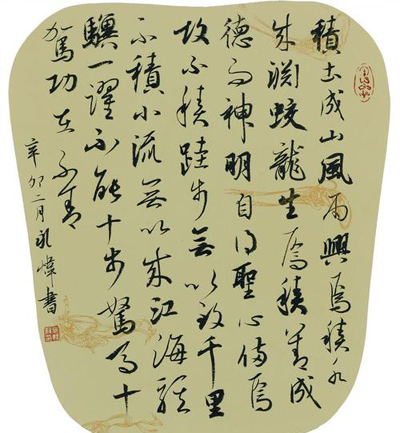 積土成山風雨興焉積水
成淵蛟龍生焉積善成
德而神明自得聖心備焉
故不積跬步無以致千里
不積小流無以成江海騏
驥一躍不能十步駑馬十
駕功在不舍
辛卯二月煒書